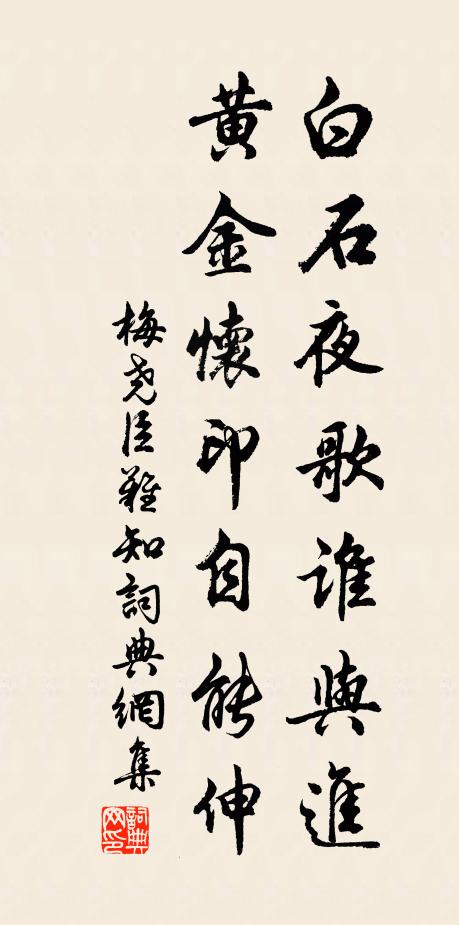 白石夜歌誰與進
黃金懷印自能伸
梅堯臣難知詞典網集
詞典网印